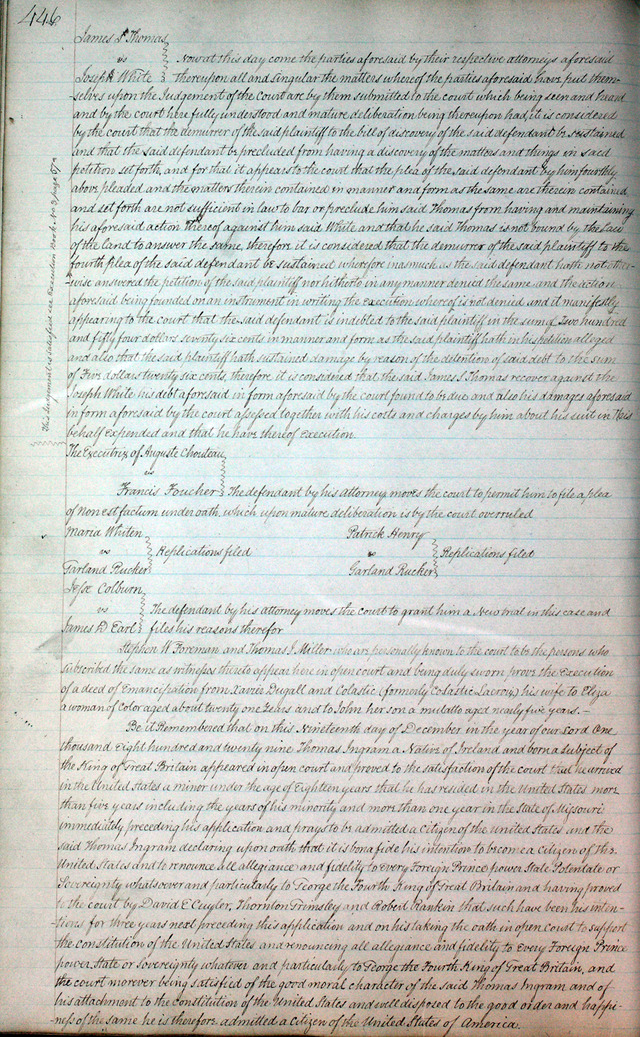 446
James S Thomas
vs
Now at this day come the parties aforesaid by their respective attorneys aforesaid
Joseph White thereupon all and singular the matters whereof the parties aforesaid have put them-
-selves upon the Judgement of the Court are by them submitted to the court which being seen and heard
and by the court here fully understood and mature deliberation being thereupon had, it is considered
by the court that the demurrer of the said plaintiff to the bill of discovery of the said defendant be sustained
and that the said defendant be precluded from having a discovery of the matters and things in said
petition set forth, and for that it appears to the court that the plea of the said defendant by him fourthly
above pleaded and the matters therein contained in manner and form as the same are therein contained
and set forth are not sufficient in law to bar or preclude him said Thomas from having and maintaining
his aforesaid action thereof against him said White and that he said Thomas is not bound by the Law
of the land to answer the same, therefore it is considered that the demurrer of the said plaintiff to the
fourth plea of the said defendant be sustained wherefore inasmuch as the said defendant hath not other-
-wise answered the petition of the said plaintiff nor hitherto in any manner denied the same and the action
aforesaid being founded on an instrument in writing the execution whereof is not denied and it manifestly
appearing to the court that the said defendant is indebted to the said plaintiff in the sum of Two hundred
and fifty four dollars seventy six cents in manner and form as the said plaintiff hath in his petition alleged
and also that the said plaintiff hath sustained damage by reason of the detention of said debt to the sum
of Five dollars twenty six cents, therefore it is considered that the said James S Thomas recover against the
Joseph White his debt aforesaid in form aforesaid by the court found to be due and also his damages aforesaid
in form aforesaid by the court assessed together with his costs and charges by him about his suit in this
behalf Expended and that he have thereof Execution.
This Judgment is satisfied see Execution Book No 2 page
The Executrix of Auguste Chouteau
vs
Francis Foucher The defendant by his attorney moves the court to permit him to file a plea
of Non est factum under oath, which upon mature deliberation is by the court overruled
Maria Whiten
vs Replications filed
Garland Rucker
Patrick Henry
vs Replications filed
Garland Rucker
Jesse Colburn
vs The defendant by his attorney moves the court to grant him a New trial in this case and
James D Earl files his reasons therefor
Stephen W Foreman and Thomas J Miller who are personally known to the court to be the persons who
subscribed the same as witness thereto appear here in open court and being duly sworn prove the Execution
of a deed of Emancipation from Xavier Dugall and Colastic (formerly Colastic Lacroix) his wife to Eliza
a woman of Color aged about twenty one Years and to John her son a mulatto aged nearly five years.-
Be it Remembered that on this Nineteenth day of December in the year of our Lord One
thousand Eight hundred and twenty nine Thomas Ingram a Native of Ireland and born a subject of
the King of Great Britain appeared in open court and proved to the satisfaction of the court that he arrived
in the United States a minor under the age of Eighteen years that he has resided in the United States more
than five years including the years of his minority and more than one year in the State of Missouri
immediately preceding his application and prays to be admitted a citizen of the united States and the
said Thomas Ingram declaring upon oath that it is bona fide his intention to become a citizen of the
United States and to renounce all allegiance and fidelity to Every Foreign Prince power State Potentate or
Sovereignty whatsoever and particularly to George the Fourth King of Great Britain and having proved
to the court by David E Cuyler, Thornton Grimsley and Robert Rankin that such have been his inten-
-tions for three years next preceding this application and on his taking the oath in open court to support
the constitution of the United States and renouncing all allegiance and fidelity to Every Foreign Prince
power State or Sovereignty whatever and particularly to George the Fourth King of Great Britain, and
the court morever being satisfied of the good moral character of the said Thomas Ingram and of
his attachment to the constitution of the United States and well disposed to the good order and happi-
-ness of the same he is therefore admitted a Citizen of the United States of America.